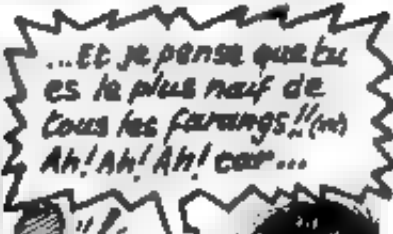 ...Et je pense que tu
es le plus naïf de
tous les farangs!!
Ah! Ah! Ah! car...